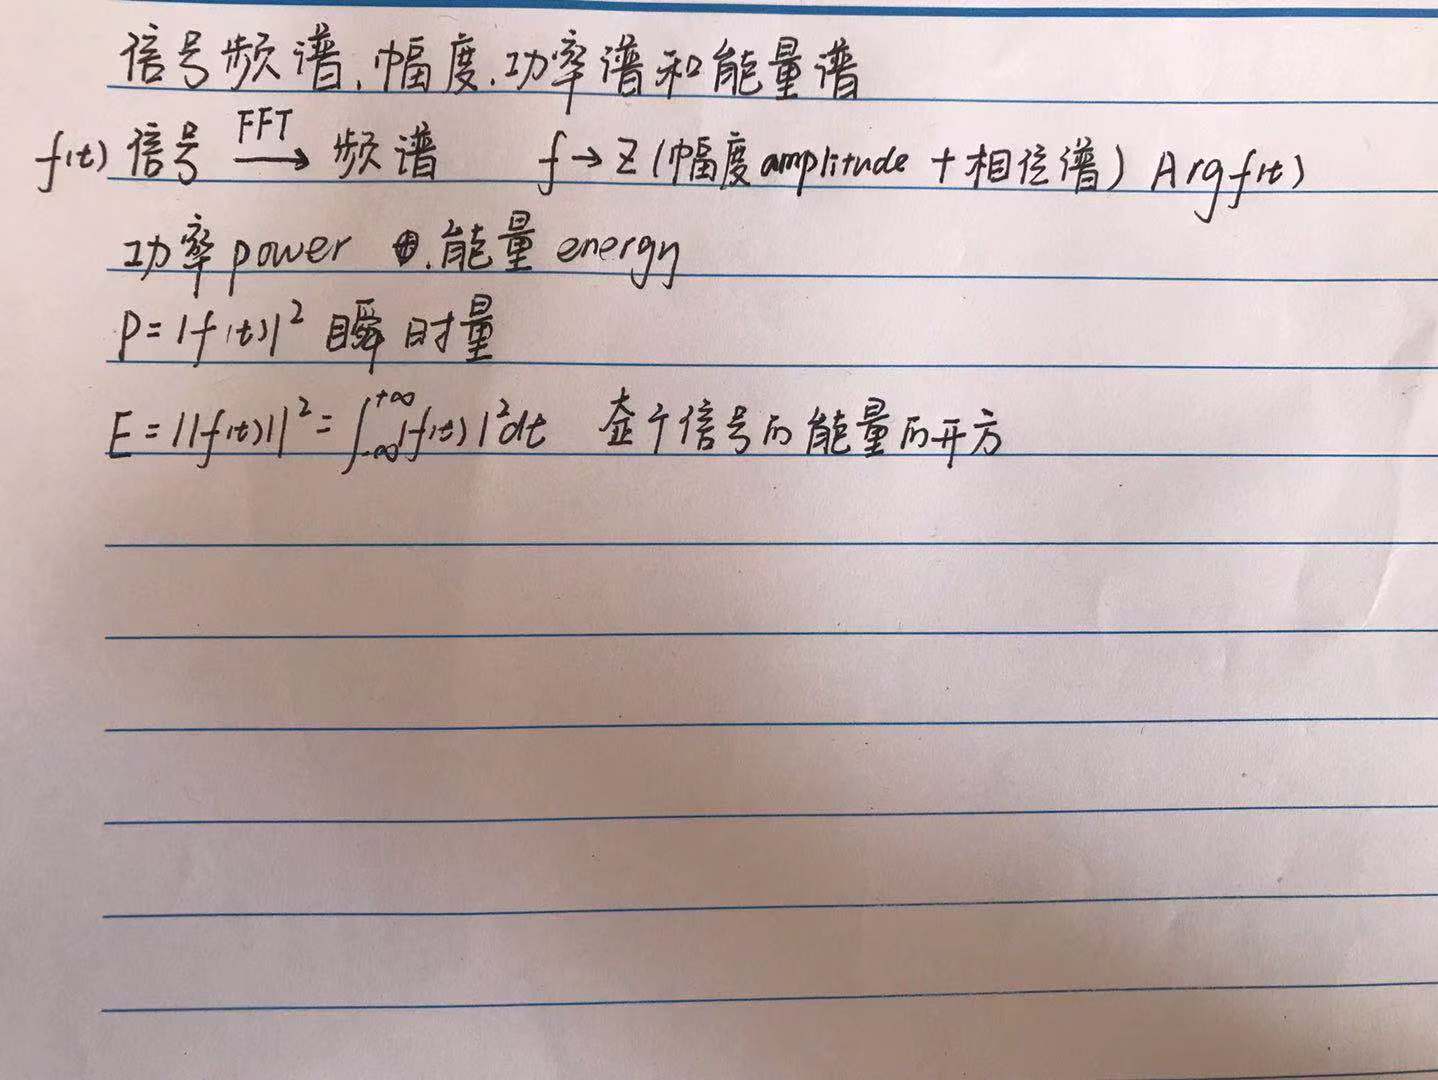 信号频谱、幅度、功率谱和能量谱
f(t) 信号 FFT→ 频谱 f→Z(幅度amplitude+相位谱) Arg f(t)
功率power 能量energy
P=|f(t)|² 瞬时量
E=||f(t)||²=∫₋∞⁺∞|f(t)|²dt 整个信号的能量的开方